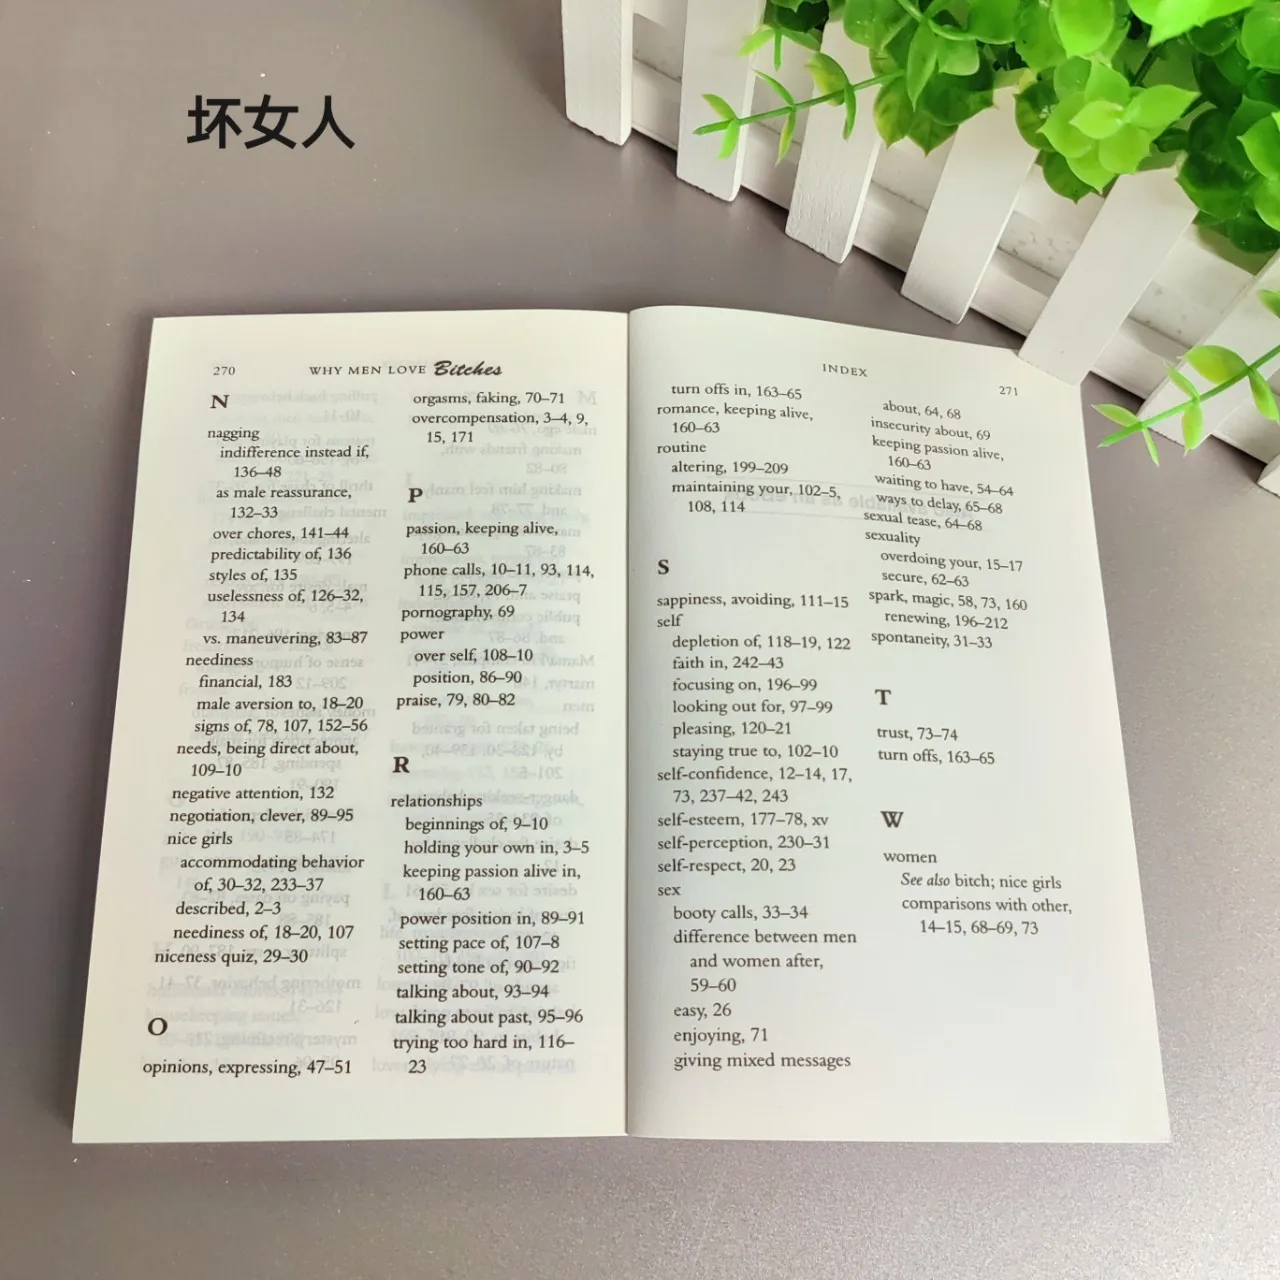 坏女人
270 WHY MEN LOVE Bitches
N
nagging
indifference instead if,
136–48
as male reassurance,
132–33
over chores, 141–44
predictability of, 136
styles of, 135
uselessness of, 126–32,
134
vs. maneuvering, 83–87
neediness
financial, 183
male aversion to, 18–20
signs of, 78, 107, 152–56
needs, being direct about,
109–10
negative attention, 132
negotiation, clever, 89–95
nice girls
accommodating behavior
of, 30–32, 233–37
described, 2–3
neediness of, 18–20, 107
niceness quiz, 29–30
O
opinions, expressing, 47–51
orgasms, faking, 70–71
overcompensation, 3–4, 9,
15, 171
P
passion, keeping alive,
160–63
phone calls, 10–11, 93, 114,
115, 157, 206–7
pornography, 69
power
over self, 108–10
position, 86–90
praise, 79, 80–82
R
relationships
beginnings of, 9–10
holding your own in, 3–5
keeping passion alive in,
160–63
power position in, 89–91
setting pace of, 107–8
setting tone of, 90–92
talking about, 93–94
talking about past, 95–96
trying too hard in, 116–
23
INDEX 271
turn offs in, 163–65
romance, keeping alive,
160–63
routine
altering, 199–209
maintaining your, 102–5,
108, 114
S
sappiness, avoiding, 111–15
self
depletion of, 118–19, 122
faith in, 242–43
focusing on, 196–99
looking out for, 97–99
pleasing, 120–21
staying true to, 102–10
self-confidence, 12–14, 17,
73, 237–42, 243
self-esteem, 177–78, xv
self-perception, 230–31
self-respect, 20, 23
sex
booty calls, 33–34
difference between men
and women after,
59–60
easy, 26
enjoying, 71
giving mixed messages
about, 64, 68
insecurity about, 69
keeping passion alive,
160–63
waiting to have, 54–64
ways to delay, 65–68
sexual tease, 64–68
sexuality
overdoing your, 15–17
secure, 62–63
spark, magic, 58, 73, 160
renewing, 196–212
spontaneity, 31–33
T
trust, 73–74
turn offs, 163–65
W
women
See also bitch; nice girls
comparisons with other,
14–15, 68–69, 73